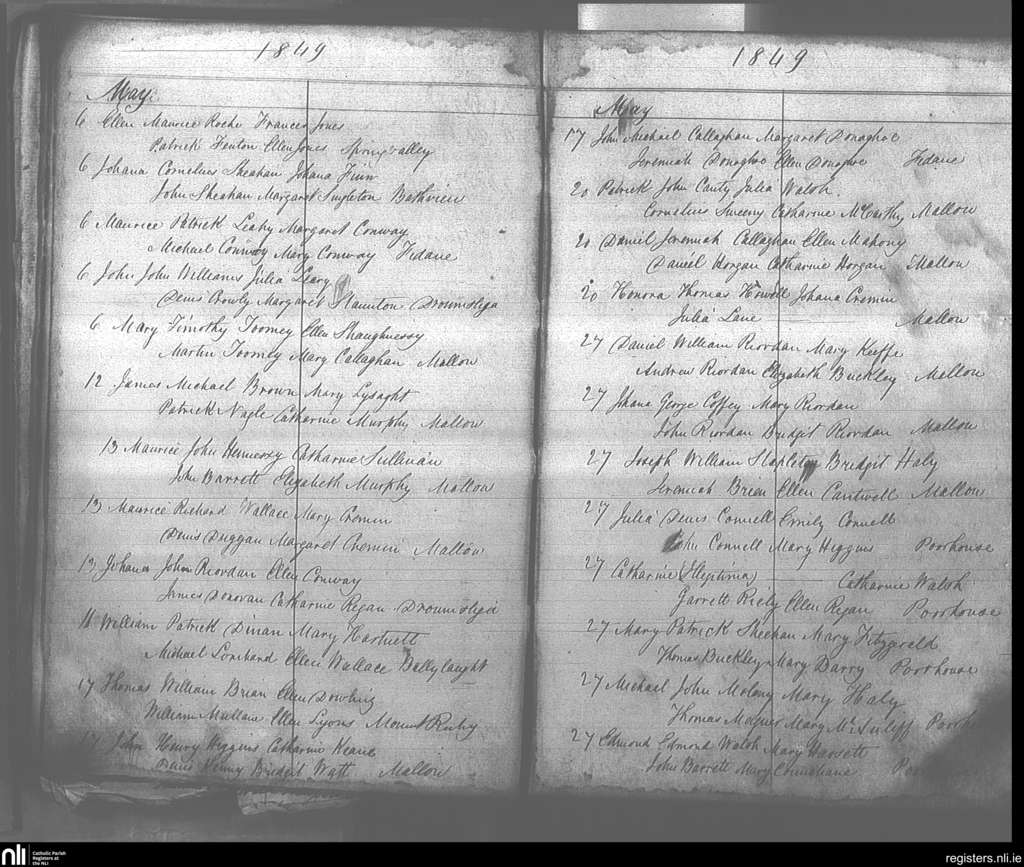 1849
May
6 Ellen Maurice Roche Frances Jones
Patrick Fenton Ellen Jones Springvalley
6 Johana Cornelius Sheahan Johana Finn
John Sheahan Margaret Singleton Bathview
6 Maurice Patrick Leahy Margaret Conway
Michael Conway Mary Conway Fidane
6 John John Williams Julia Leary
Denis Crowly Margaret Staunton Droumsliga
6 Mary Timothy Toomey Ellen Shaughnessy
Martin Toomey Mary Callaghan Mallow
12 James Michael Brown Mary Lysaght
Patrick Nagle Catharine Murphy Mallow
13 Maurice John Hennessy Catharine Sullivan
John Barrett Elizabeth Murphy Mallow
13 Maurice Richard Wallace Mary Cremin
Denis Duggan Margaret Cremin Mallow
13 Johana John Riordan Ellen Conway
James Donovan Catharine Regan Droumsliga
William Patrick Dinan Mary Hartnett
Michael Lombard Ellen Wallace Ballylaught
17 Thomas William Brian Ellen Dowling
William Mullane Ellen Lyons Mount Ruby
17 John Henry Higgins Catharine Keane
Denis Kenny Bridgit Watt Mallow
1849
May
17 John Michael Callaghan Margaret Donaghoe
Jeremiah Donaghoe Ellen Donaghoe Fidane
20 Patrick John Canty Julia Walsh
Cornelius Sweeny Catharine McCarthy Mallow
20 Daniel Jeremiah Callaghan Ellen Mahony
Daniel Horgan Catharine Horgan Mallow
20 Honora Thomas Howell Johana Cremin
Julia Lane Mallow
27 Daniel William Riordan Mary Keeffe
Andrew Riordan Elizabeth Buckley Mallow
27 Johana George Coffey Mary Riordan
John Riordan Bridgit Riordan Mallow
27 Joseph William Stapleton Bridgit Haly
Jeremiah Brien Ellen Cantwell Mallow
27 Julia Denis Connell Emily Connell
John Connell Mary Higgins Poorhouse
27 Catharine (Illegitima) Catharine Walsh
Garrett Riely Ellen Regan Poorhouse
27 Mary Patrick Sheehan Mary Fitzgerald
Thomas Buckley Mary Barry Poorhouse
27 Michael John Molony Mary Haly
Thomas Mary McAuliff
27 Edmond Edmond Walsh Mary
John Barrett Mary
nli
Catholic Parish
Registers at
the NLI
registers.nli.ie